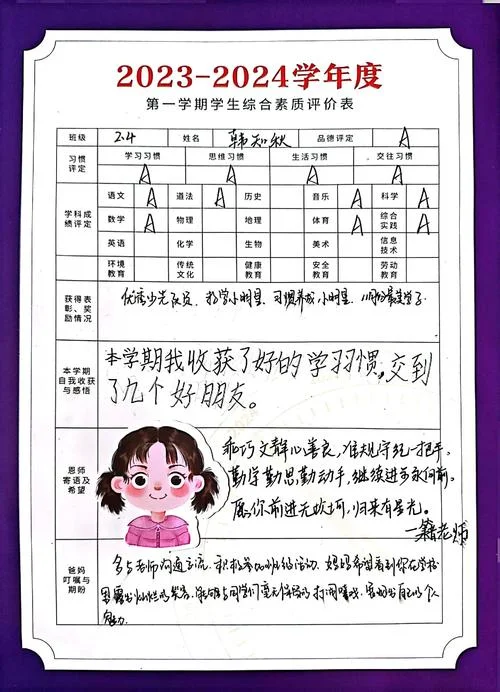 2023-2024学年度
第一学期学生综合素质评价表
班级 2.4 姓名 韩知秋 品德评定 A
习惯评定 学习习惯 思维习惯 生活习惯 交往习惯
A A A A
学科成绩评定 语文 A 道法 A 历史 音乐 A 科学 A
数学 A 物理 地理 体育 A 综合实践 A
英语 化学 生物 美术 信息技术
环境教育 传统文化 健康教育 安全教育 劳动教育
获得表彰、奖励情况
优秀少先队员、数学小明星、习惯养成小明星、
本学期自我收获与感悟
本学期我收获了好的学习惯,交到
了几个好朋友。
恩师寄语及希望
乖巧文静心善良,准规守纪一把手。
勤学勤思勤动手,继续进步永向前。
愿你前进无坎坷,归来有星光。
—籍老师
爸妈叮嘱与期盼
多与老师沟通交流,积极参加活动,妈妈希望看到你在学校
灿烂的笑容,与同学们打闹嬉戏,自己的个人
魅力.